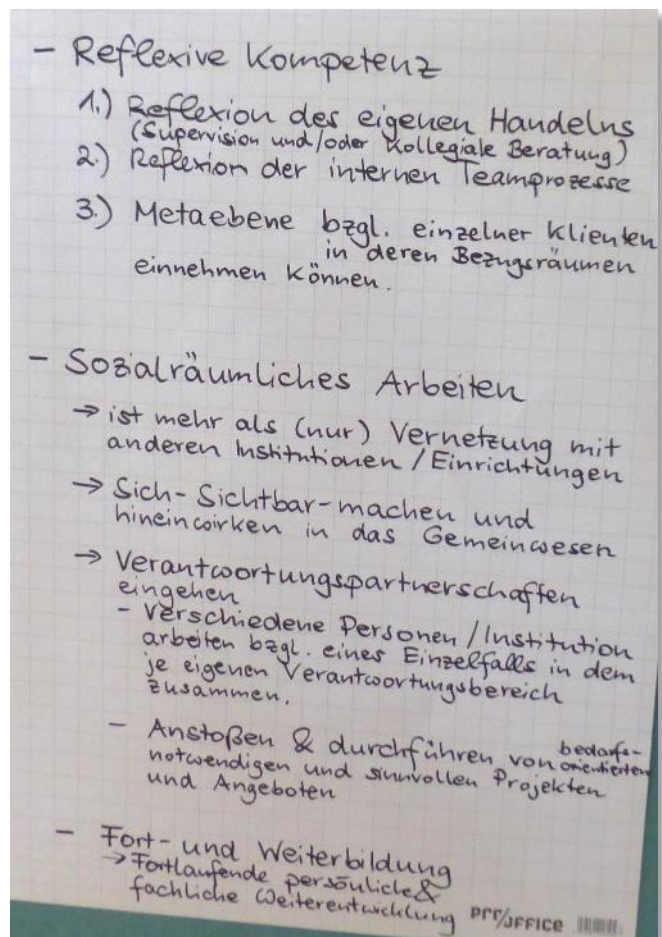 - Reflexive Kompetenz
1.) Reflexion des eigenen Handelns
(Supervision und/oder Kollegiale Beratung)
2.) Reflexion der internen Teamprozesse
3.) Metaebene bzgl. einzelner Klienten
in deren Bezugsräumen
einnehmen können.
- Sozialräumliches Arbeiten
→ ist mehr als (nur) Vernetzung mit
anderen Institutionen / Einrichtungen
→ Sich-Sichtbar-machen und
hineinwirken in das Gemeinwesen
→ Verantwortungspartnerschaften
eingehen
- Verschiedene Personen / Institution
arbeiten bzgl. eines Einzelfalls in dem
je eigenen Verantwortungsbereich
zusammen.
- Anstoßen & durchführen von bedarfs-
orientierten
notwendigen und sinnvollen Projekten
und Angeboten
- Fort- und Weiterbildung
→ Fortlaufende persönliche &
fachliche Weiterentwicklung
pro/OFFICE